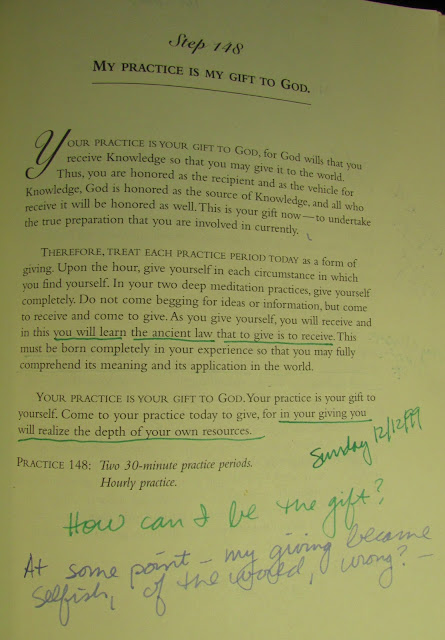 Step 148
MY PRACTICE IS MY GIFT TO GOD.
YOUR PRACTICE IS YOUR GIFT TO GOD, for God wills that you
receive Knowledge so that you may give it to the world.
Thus, you are honored as the recipient and as the vehicle for
Knowledge, God is honored as the source of Knowledge, and all who
receive it will be honored as well. This is your gift now—to undertake
the true preparation that you are involved in currently.
THEREFORE, TREAT EACH PRACTICE PERIOD TODAY as a form of
giving. Upon the hour, give yourself in each circumstance in which
you find yourself. In your two deep meditation practices, give yourself
completely. Do not come begging for ideas or information, but come
to receive and come to give. As you give yourself, you will receive and
in this you will learn the ancient law that to give is to receive. This
must be born completely in your experience so that you may fully
comprehend its meaning and its application in the world.
YOUR PRACTICE IS YOUR GIFT TO GOD. Your practice is your gift to
yourself. Come to your practice today to give, for in your giving you
will realize the depth of your own resources.
Sunday 12/12/99
PRACTICE 148: Two 30-minute practice periods.
Hourly practice.
How can I be the gift?
At some point – my giving became
selfish, of the world, wrong? –